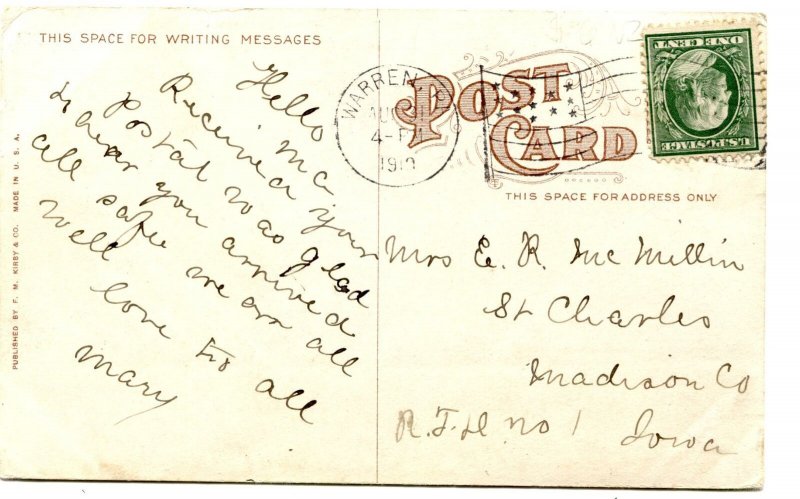 THIS SPACE FOR WRITING MESSAGES
Hello
Mc
Received your
Postal was glad
to hear you arrived
all safe we are all
well love to all
Mary
PUBLISHED BY F. M. KIRBY & CO. MADE IN U. S. A.
WARREN
AUG
1910
POST
CARD
THIS SPACE FOR ADDRESS ONLY
U.S. POSTAGE
ONE CENT
Mrs E. R. Mc Millin
St Charles
Madison Co
R.F.D. no 1 Iowa